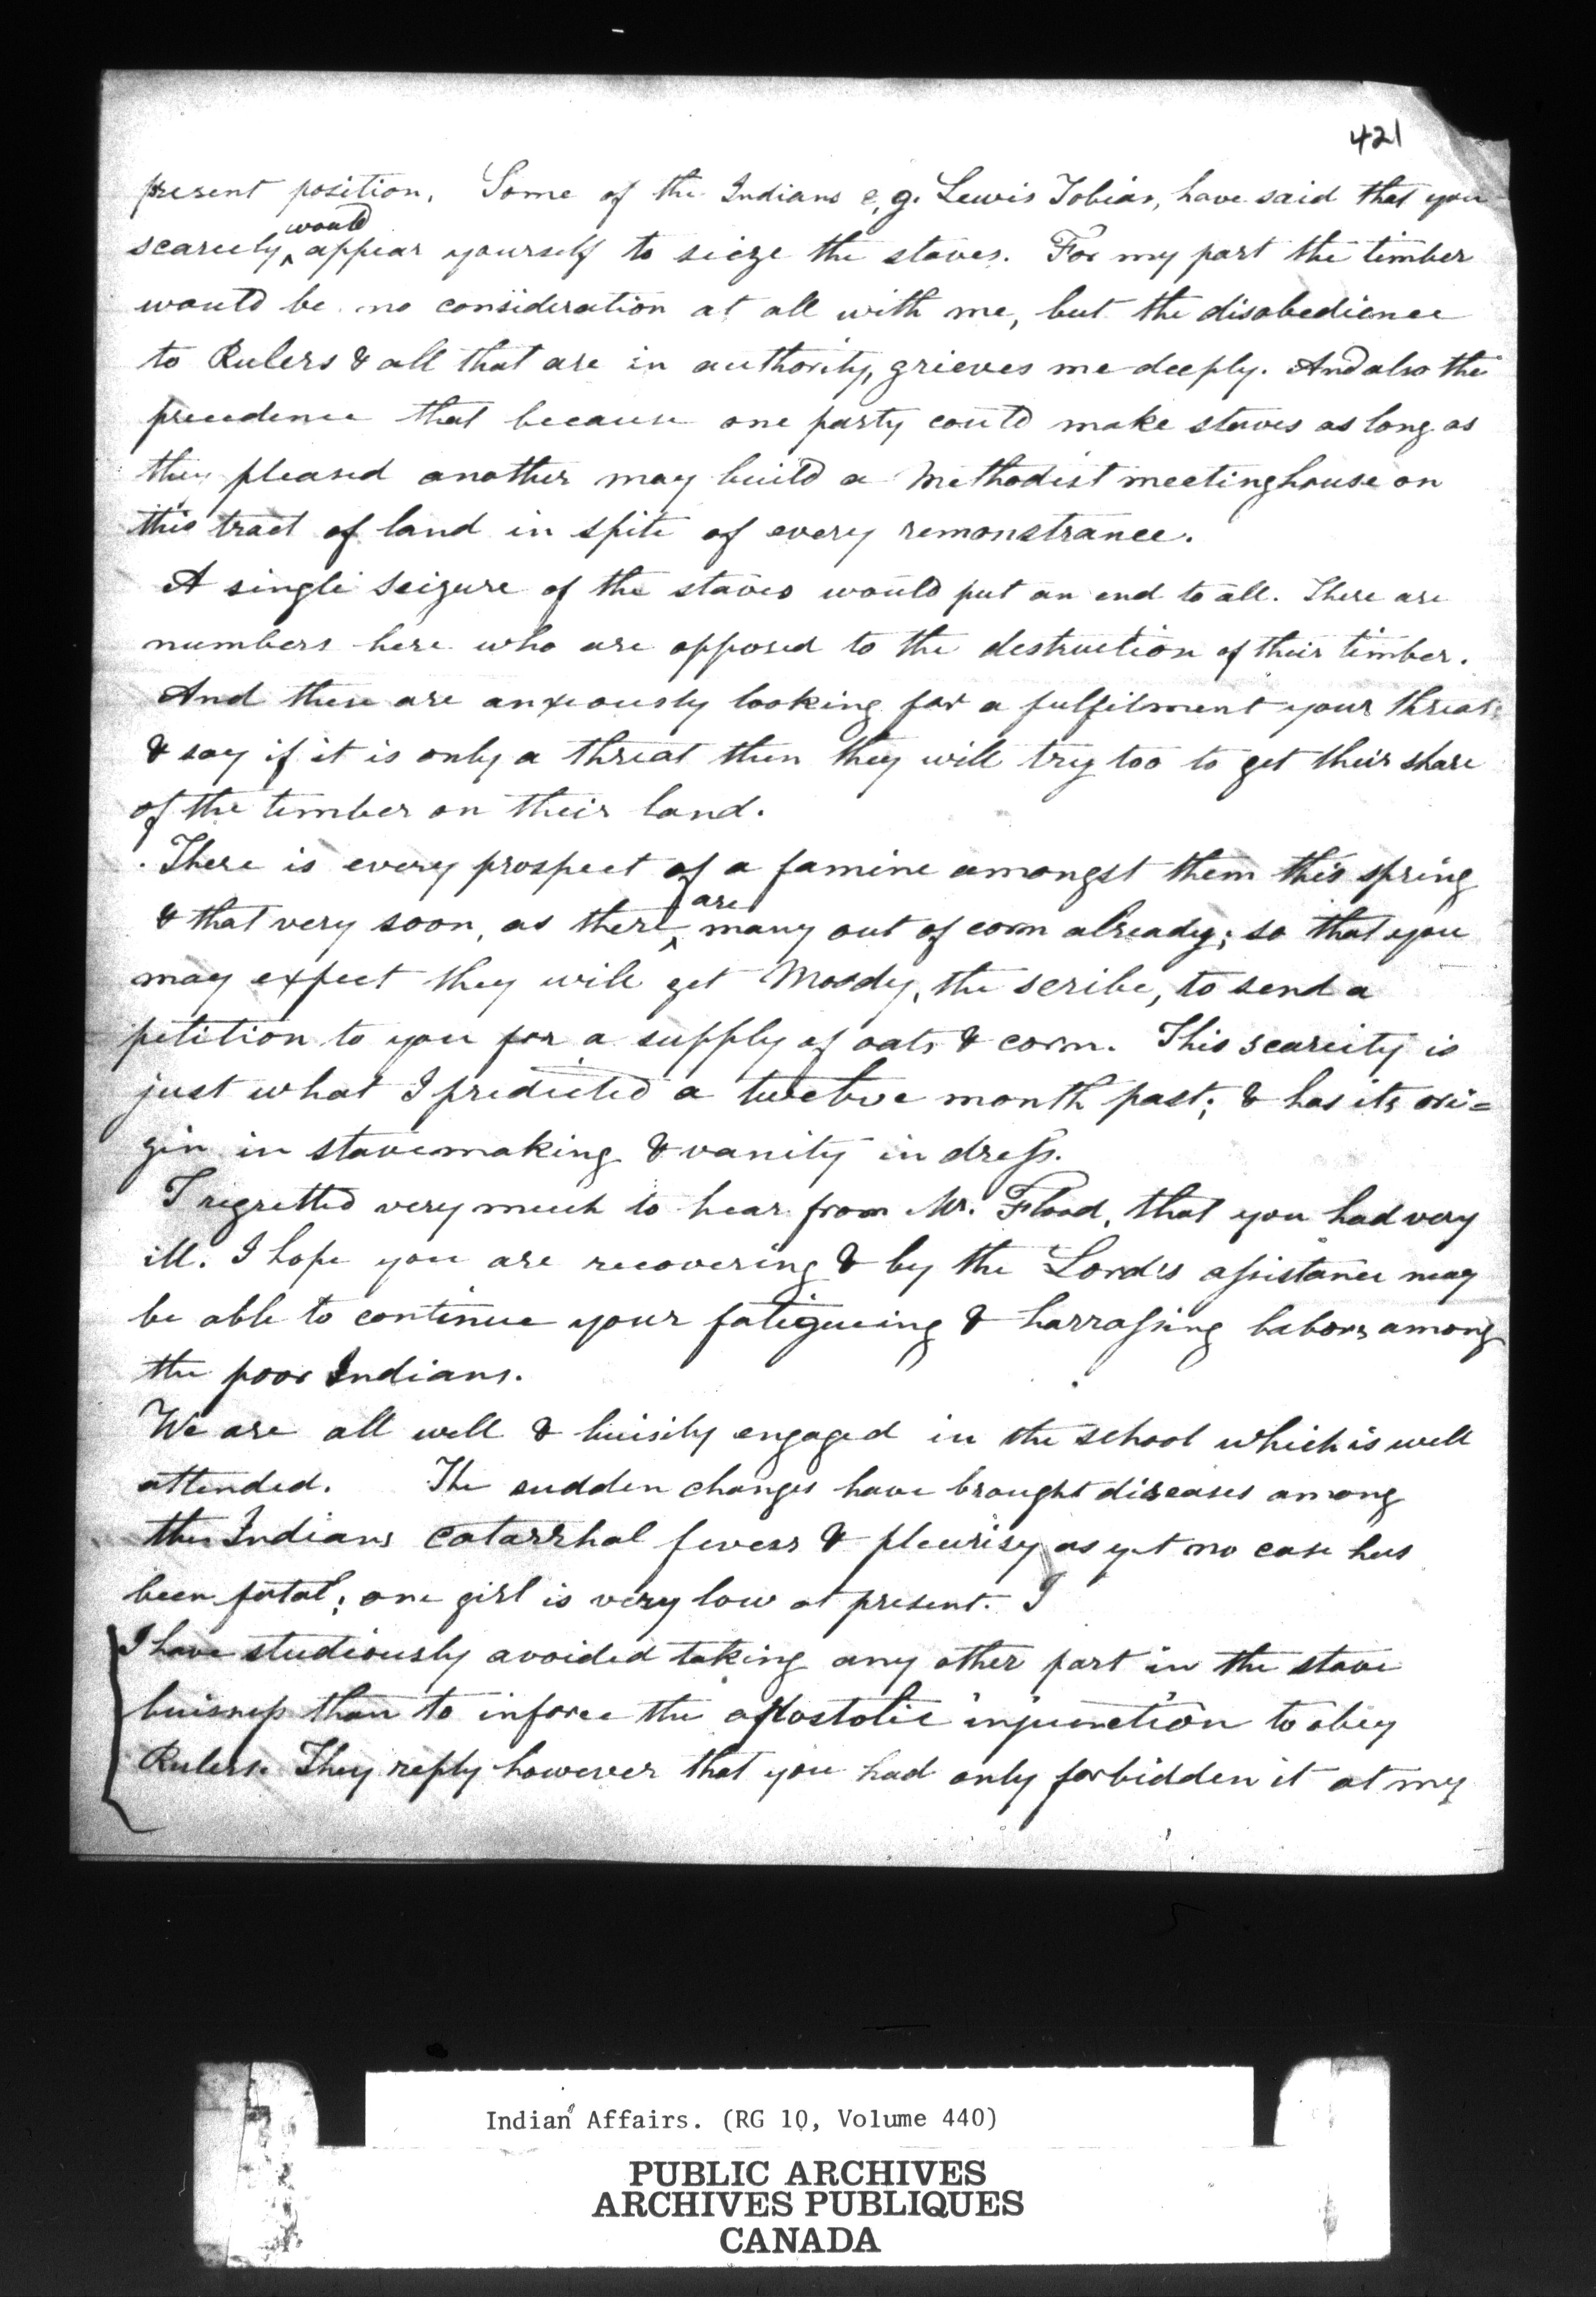 421
present position. Some of the Indians e,g. Lewis Tobias, have said that you
would
scarcely ^ appear yourself to sieze the staves. For my part the timber
would be no consideration at all with me, but the disobedience
to Rulers & all that are in authority, grieves me deeply. And also the
precedence that because one party could make staves as long as
they pleased another may build a Methodist meetinghouse on
this tract of land in spite of every remonstrance.
A single seizure of the staves would put an end to all. There are
numbers here who are opposed to the destruction of their timber.
And these are anxiously looking for a fulfilment your threat
& say if it is only a threat then they will try too to get their share
of the timber on their land.
There is every prospect of a famine amongst them this spring
are
& that very soon, as there ^ many out of corn already; so that you
may expect they will get Moody, the scribe, to send a
petition to you for a supply of oats & corn. This scarcity is
just what I predicted a twelve month past; & has its ori=
gin in stavemaking & vanity in dress.
I regretted very much to hear from Mr. Flood, that you had very
ill. I hope you are recovering & by the Lord's assistance may
be able to continue your fatigueing & harrassing labors among
the poor Indians.
We are all well & buisily engaged in the school which is well
attended. The sudden changes have brought diseases among
the Indians catarrhal fevers & pleurisy as yet no case has
been fatal; one girl is very low at present. I
I have studiously avoided taking any other part in the stave
buisness than to inforce the apostolic injunction to obey
Rulers. They reply however that you had only forbidden it at my
Indian Affairs. (RG 10, Volume 440)
PUBLIC ARCHIVES
ARCHIVES PUBLIQUES
CANADA